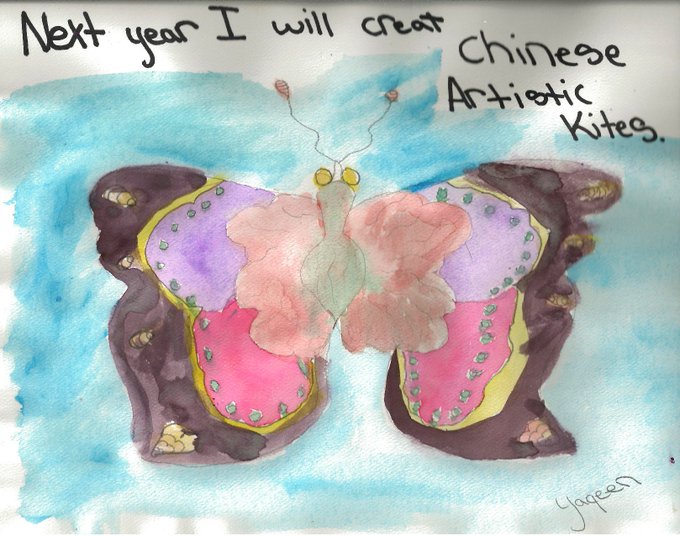 Next year I will creat
Chinese
Artistic
Kites.
Yaqeen